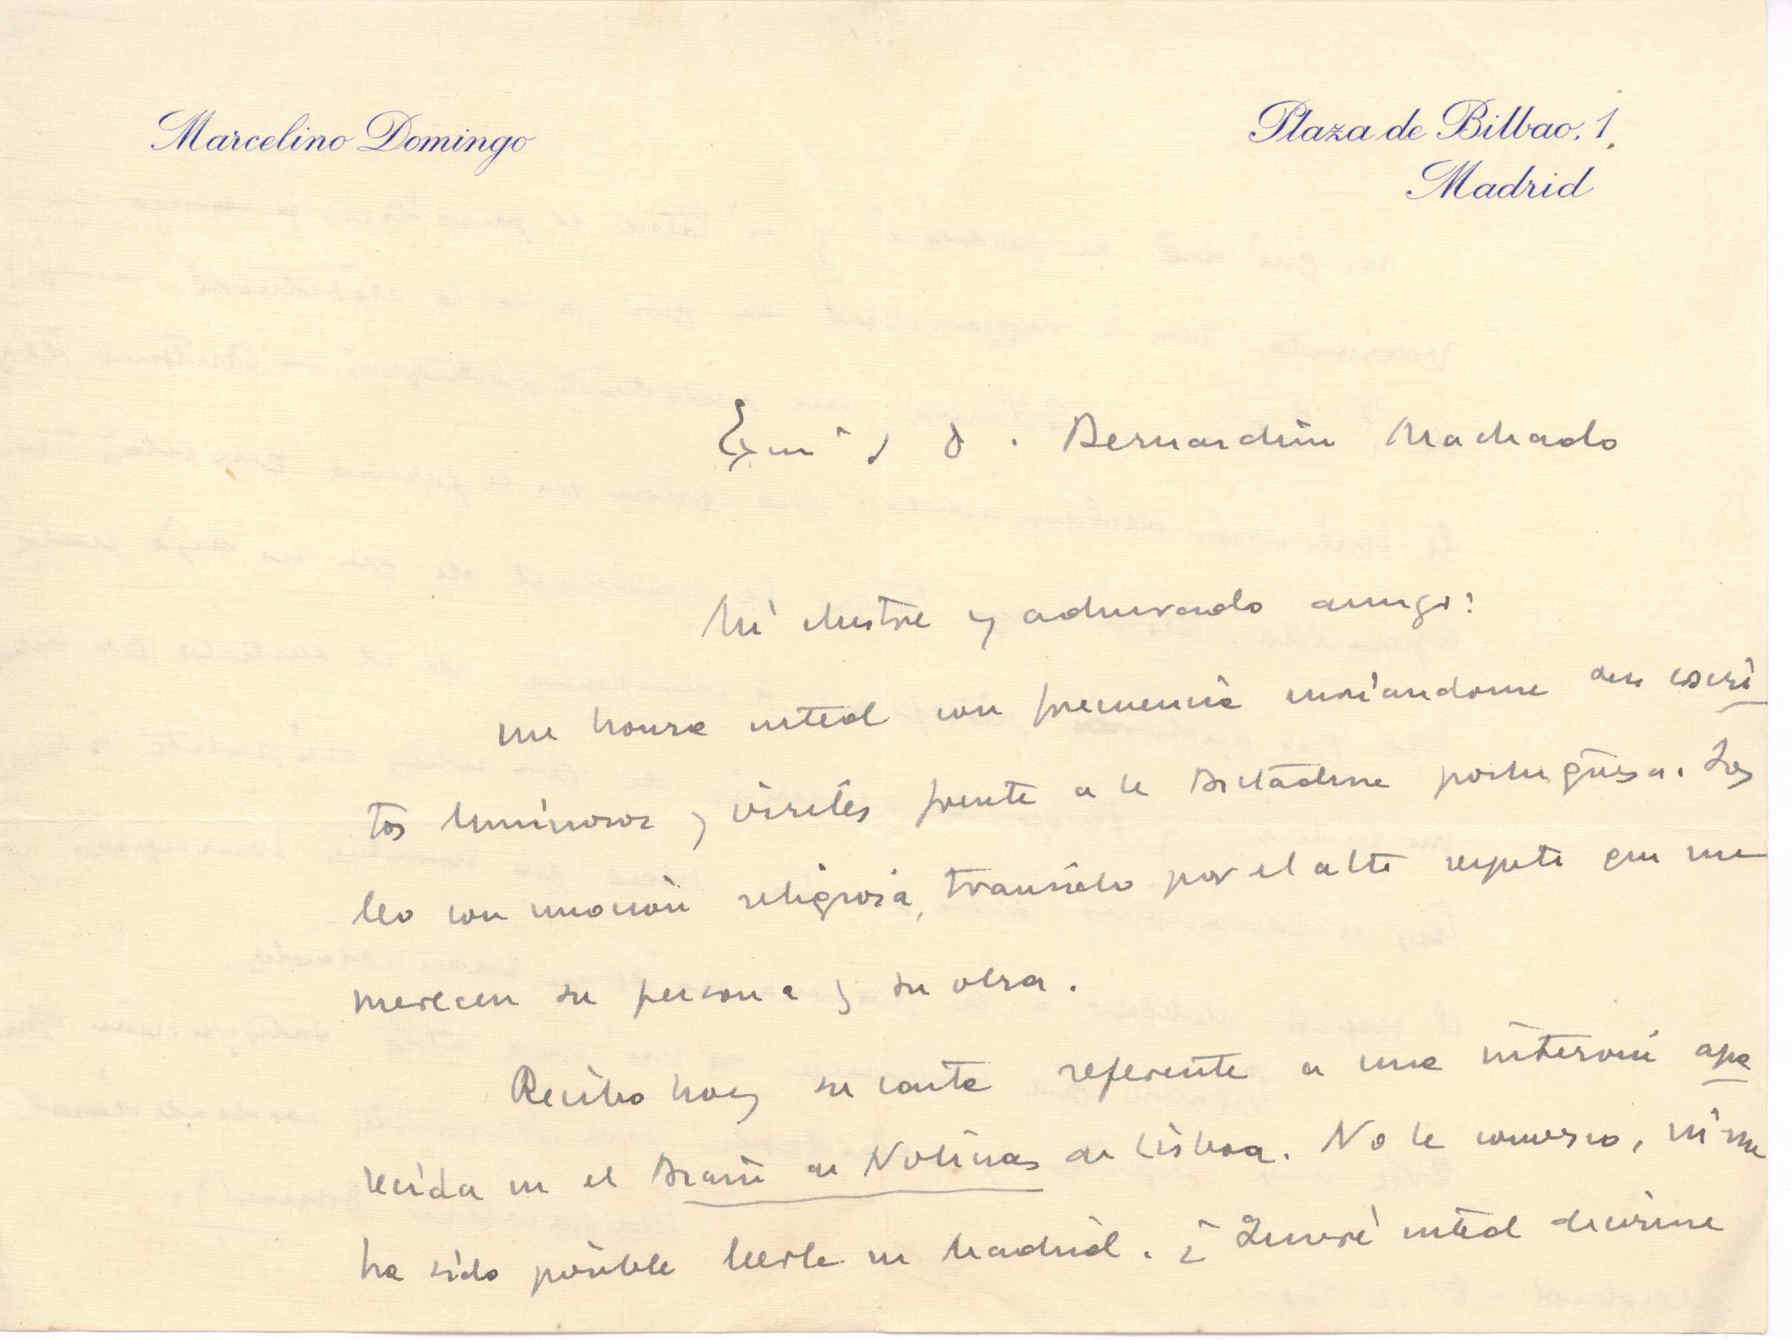 Marcelino Domingo
Plaza de Bilbao. 1.
Madrid
Exmº S D. Bernardino Machado
Mi ilustre y admirado amigo:
me honra usted con frecuencia enviandome sus escri
tos luminosos y viriles frente a la Dictadura portuguesa. Los
leo con emoción religiosa, transido por el alto respeto que me
merecen su persona y su obra.
Recibo hoy su carta referente a una interviú apa
recida en el Diario de Noticias de Lisboa. No la conozco, ni me
ha sido posible leerla en Madrid. ¿Querrá usted decirme